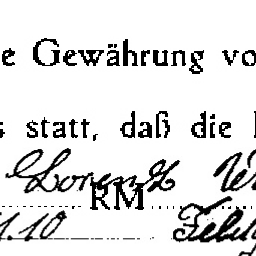 e Gewährung vo
s statt, daß die
Lorenz
RM
1.10